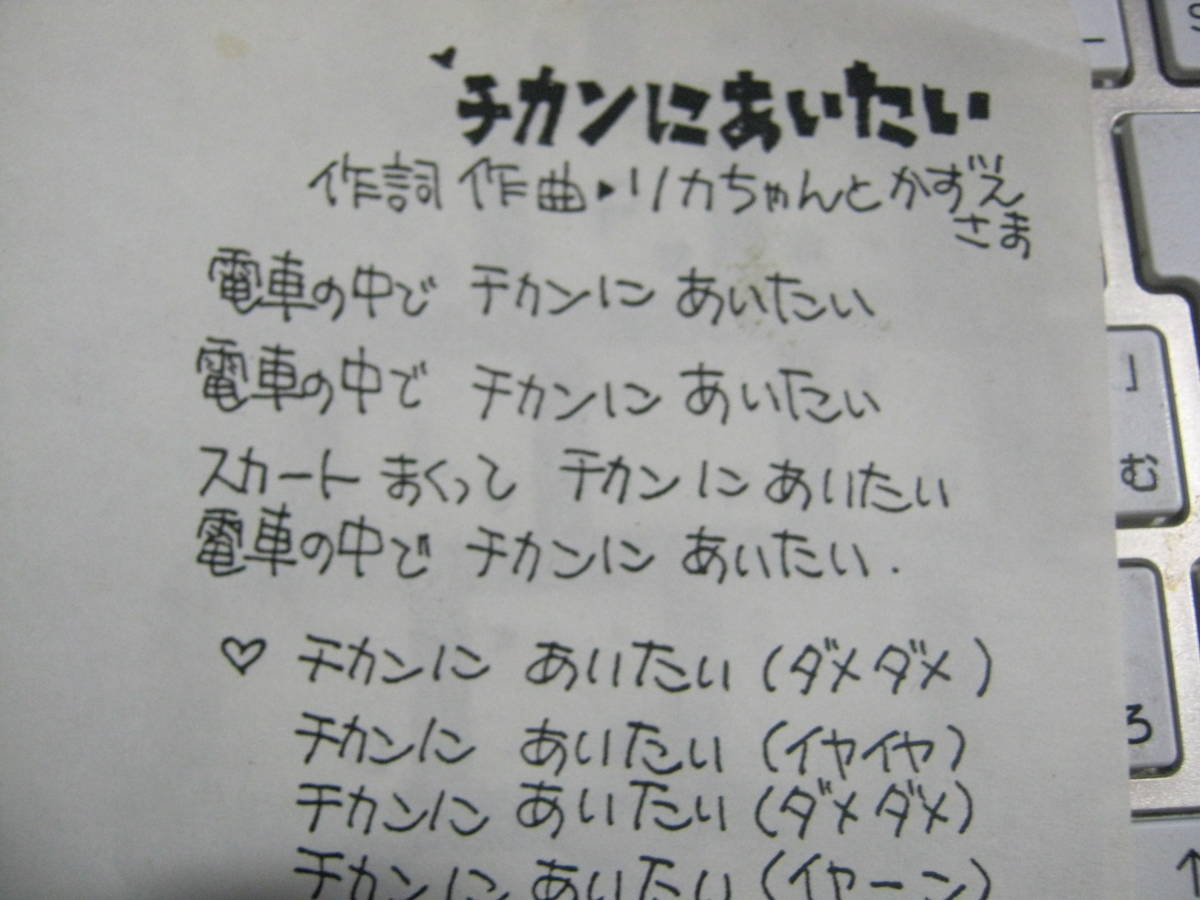 チカンにあいたい
作詞 作曲▶リカちゃんとかずえさま
電車の中で チカンに あいたい
電車の中で チカンに あいたい
スカート まくって チカンに あいたい
電車の中で チカンに あいたい.
♡ チカンに あいたい (ダメダメ)
チカンに あいたい (イヤイヤ)
チカンに あいたい (ダメダメ)
チカンに あいたい (イヤーン)
」
む
ろ
↑